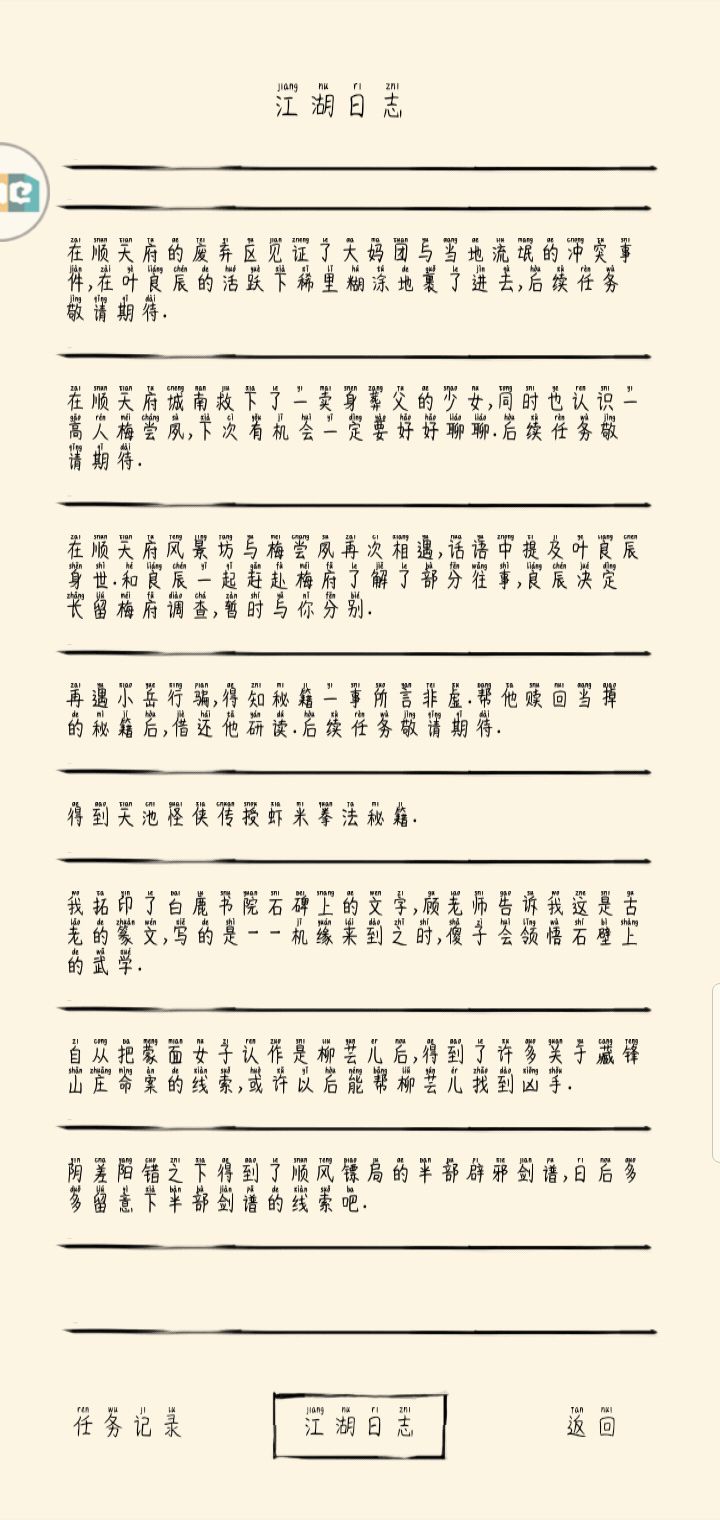 江湖日志
在顺天府的废弃区见证了大妈团与当地流氓的冲突事
件,在叶良辰的活跃下稀里糊涂地裹了进去,后续任务
敬请期待.
在顺天府城南救下了一卖身葬父的少女,同时也认识一
高人梅尝夙,下次有机会一定要好好聊聊.后续任务敬
请期待.
在顺天府风景坊与梅尝夙再次相遇,话语中提及叶良辰
身世.和良辰一起赶赴梅府了解了部分往事,良辰决定
长留梅府调查,暂时与你分别.
再遇小岳行骗,得知秘籍一事所言非虚.帮他赎回当掉
的秘籍后,借还他研读.后续任务敬请期待.
得到天池怪侠传授虾米拳法秘籍.
我拓印了白鹿书院石碑上的文字,顾老师告诉我这是古
老的篆文,写的是一一机缘来到之时,傻子会领悟石壁上
的武学.
自从把蒙面女子认作是柳芸儿后,得到了许多关于藏锋
山庄命案的线索,或许以后能帮柳芸儿找到凶手.
阴差阳错之下得到了顺风镖局的半部辟邪剑谱,日后多
多留意下半部剑谱的线索吧.
任务记录 江湖日志 返回